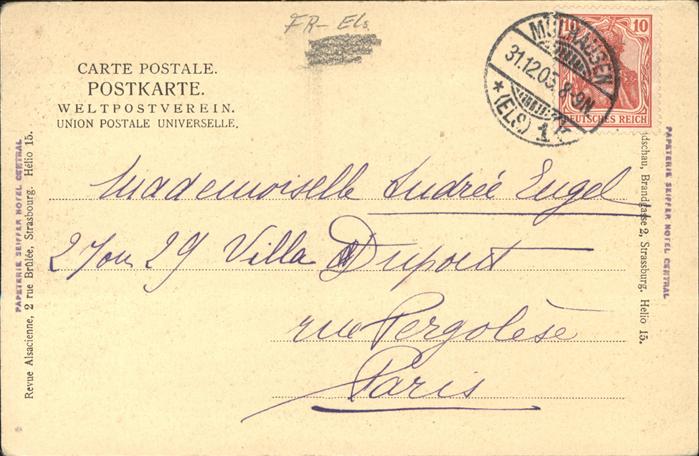 FR-Els.
CARTE POSTALE.
POSTKARTE.
WELTPOSTVEREIN.
UNION POSTALE UNIVERSELLE.
10 10
DEUTSCHES REICH
MÜLHAUSEN
31.12.05. 8-9N
* (ELS) 1
Mademoiselle Andrée Engel
27 ou 29 Villa Dupont
rue Pergolèse
Paris
PAPETERIE SEIFFER HOTEL CENTRAL
Revue Alsacienne, 2 rue Brûlée, Strasbourg. Hélio 15.
dschau, Brandgasse 2, Strassburg. Helio 15.
PAPETERIE SEIFFER HOTEL CENTRAL